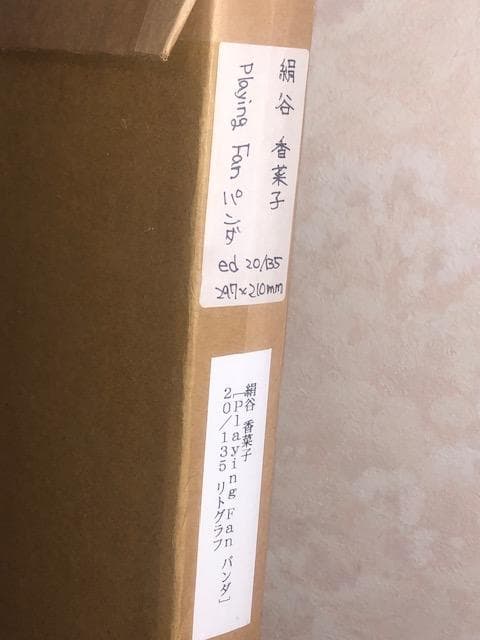 絹谷 香菜子
Playing Fan パンダ
ed 20/135
297×210mm
絹谷 香菜子
「Playing Fan パンダ」
20/135 リトグラフ